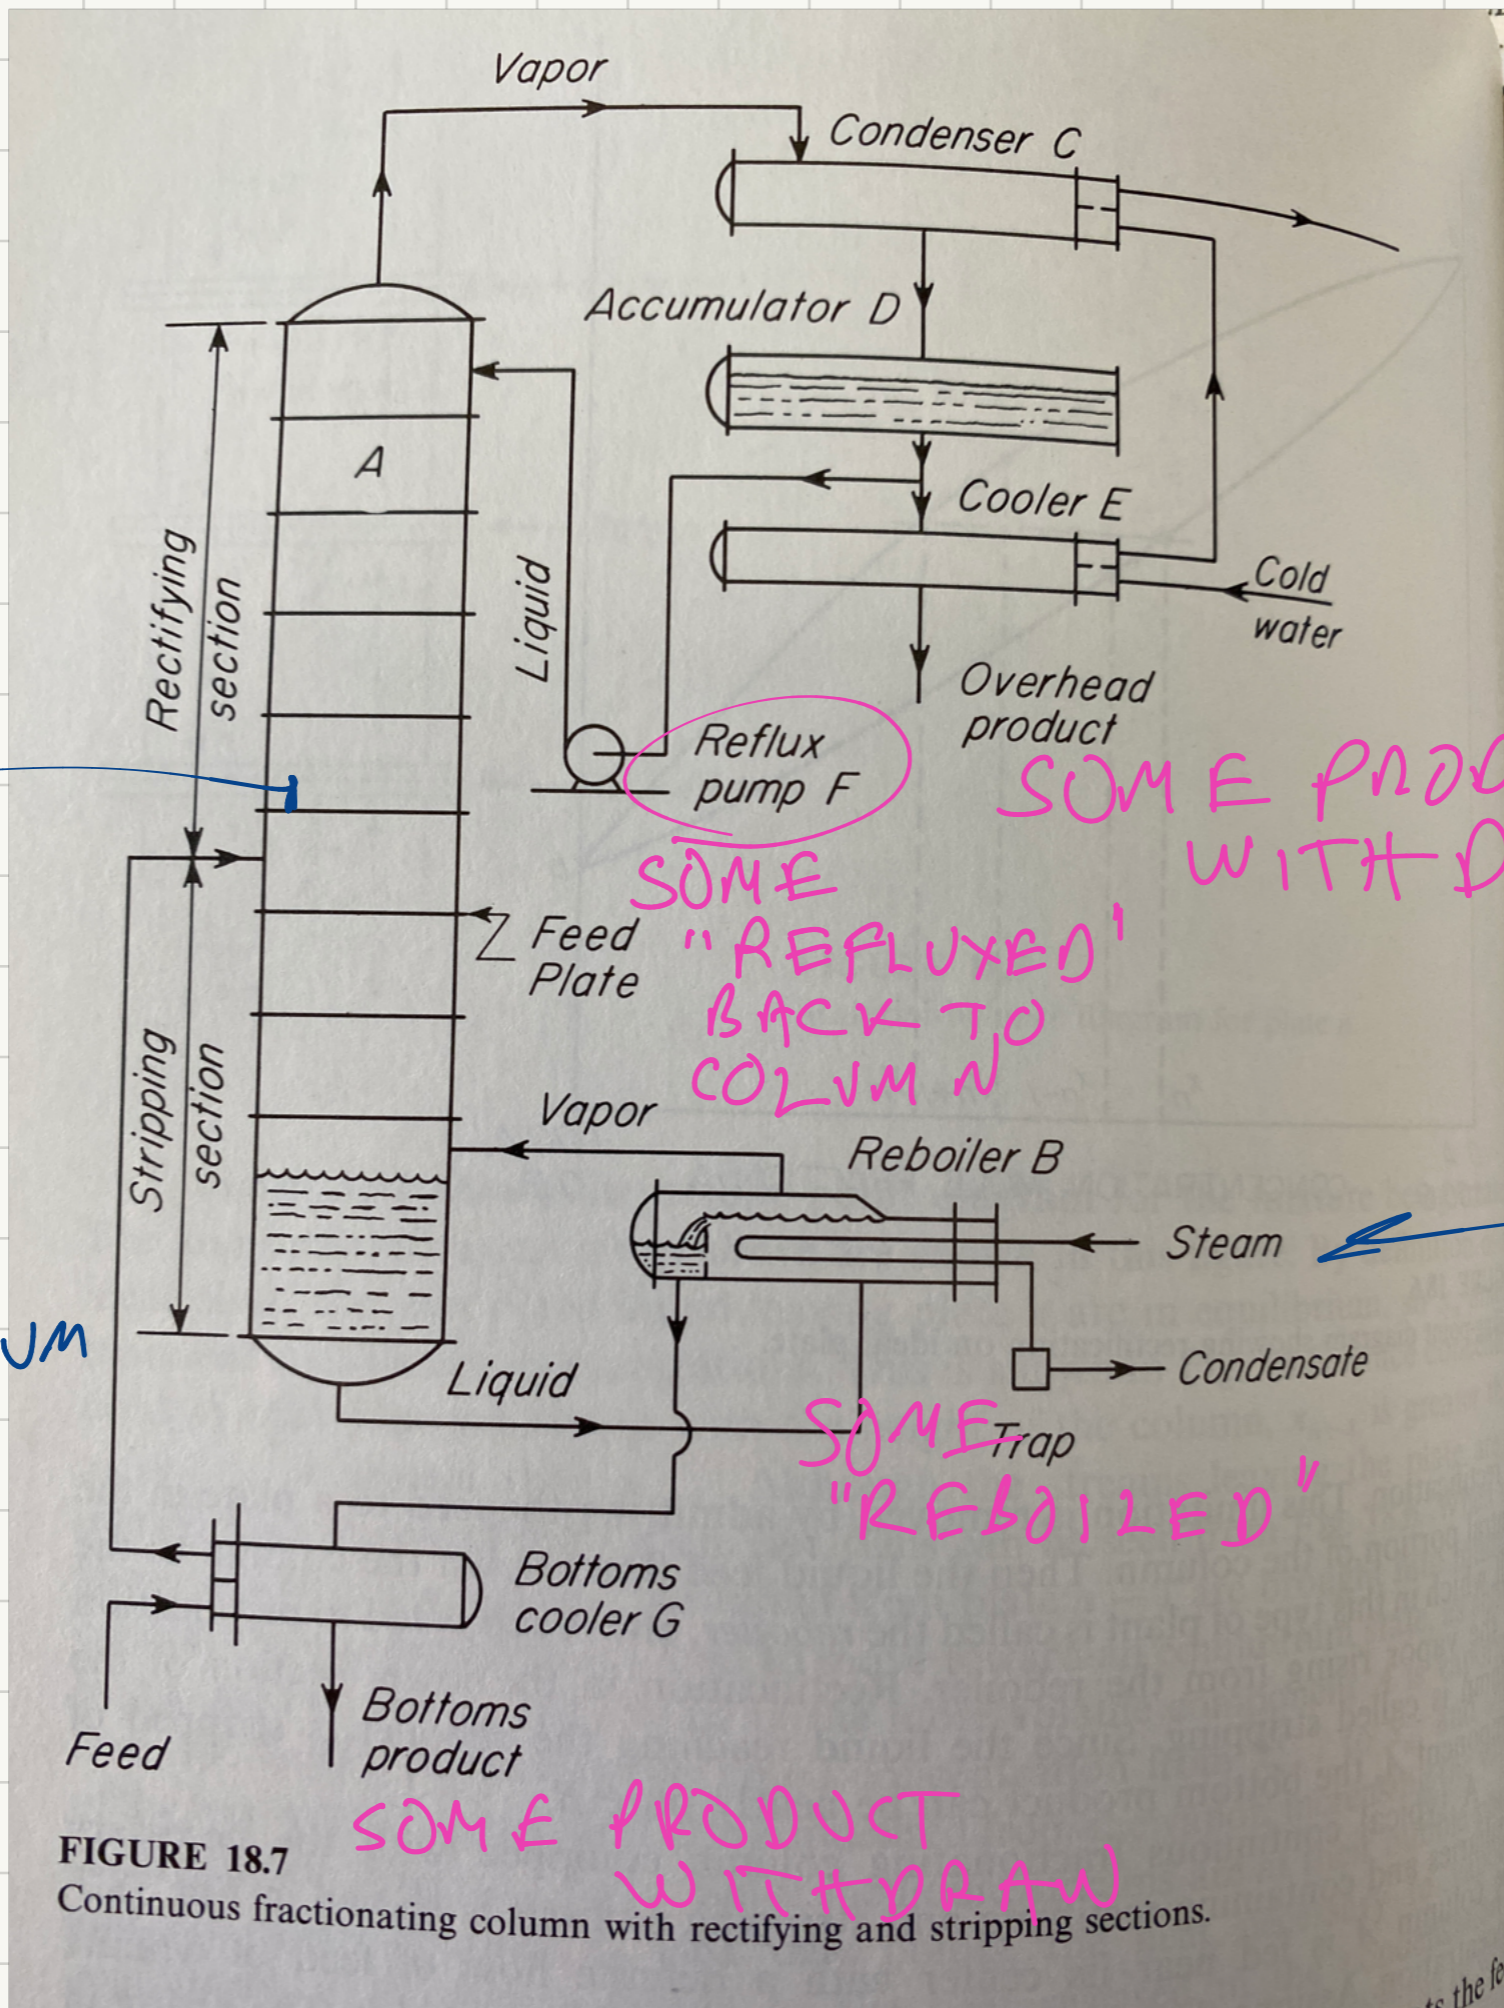 Vapor
Condenser C
Accumulator D
A
Cooler E
Cold
water
Liquid
Rectifying
section
Overhead
product
Reflux
pump F
SOME PROD
WITHD
SOME
"REFLUXED"
BACK TO
COLUMN
Feed
Plate
Stripping
section
Vapor
Reboiler B
Steam
UM
Liquid
Condensate
Trap
SOME
"REBOILED"
Bottoms
cooler G
Feed
Bottoms
product
SOME PRODUCT
WITHDRAW
FIGURE 18.7
Continuous fractionating column with rectifying and stripping sections.